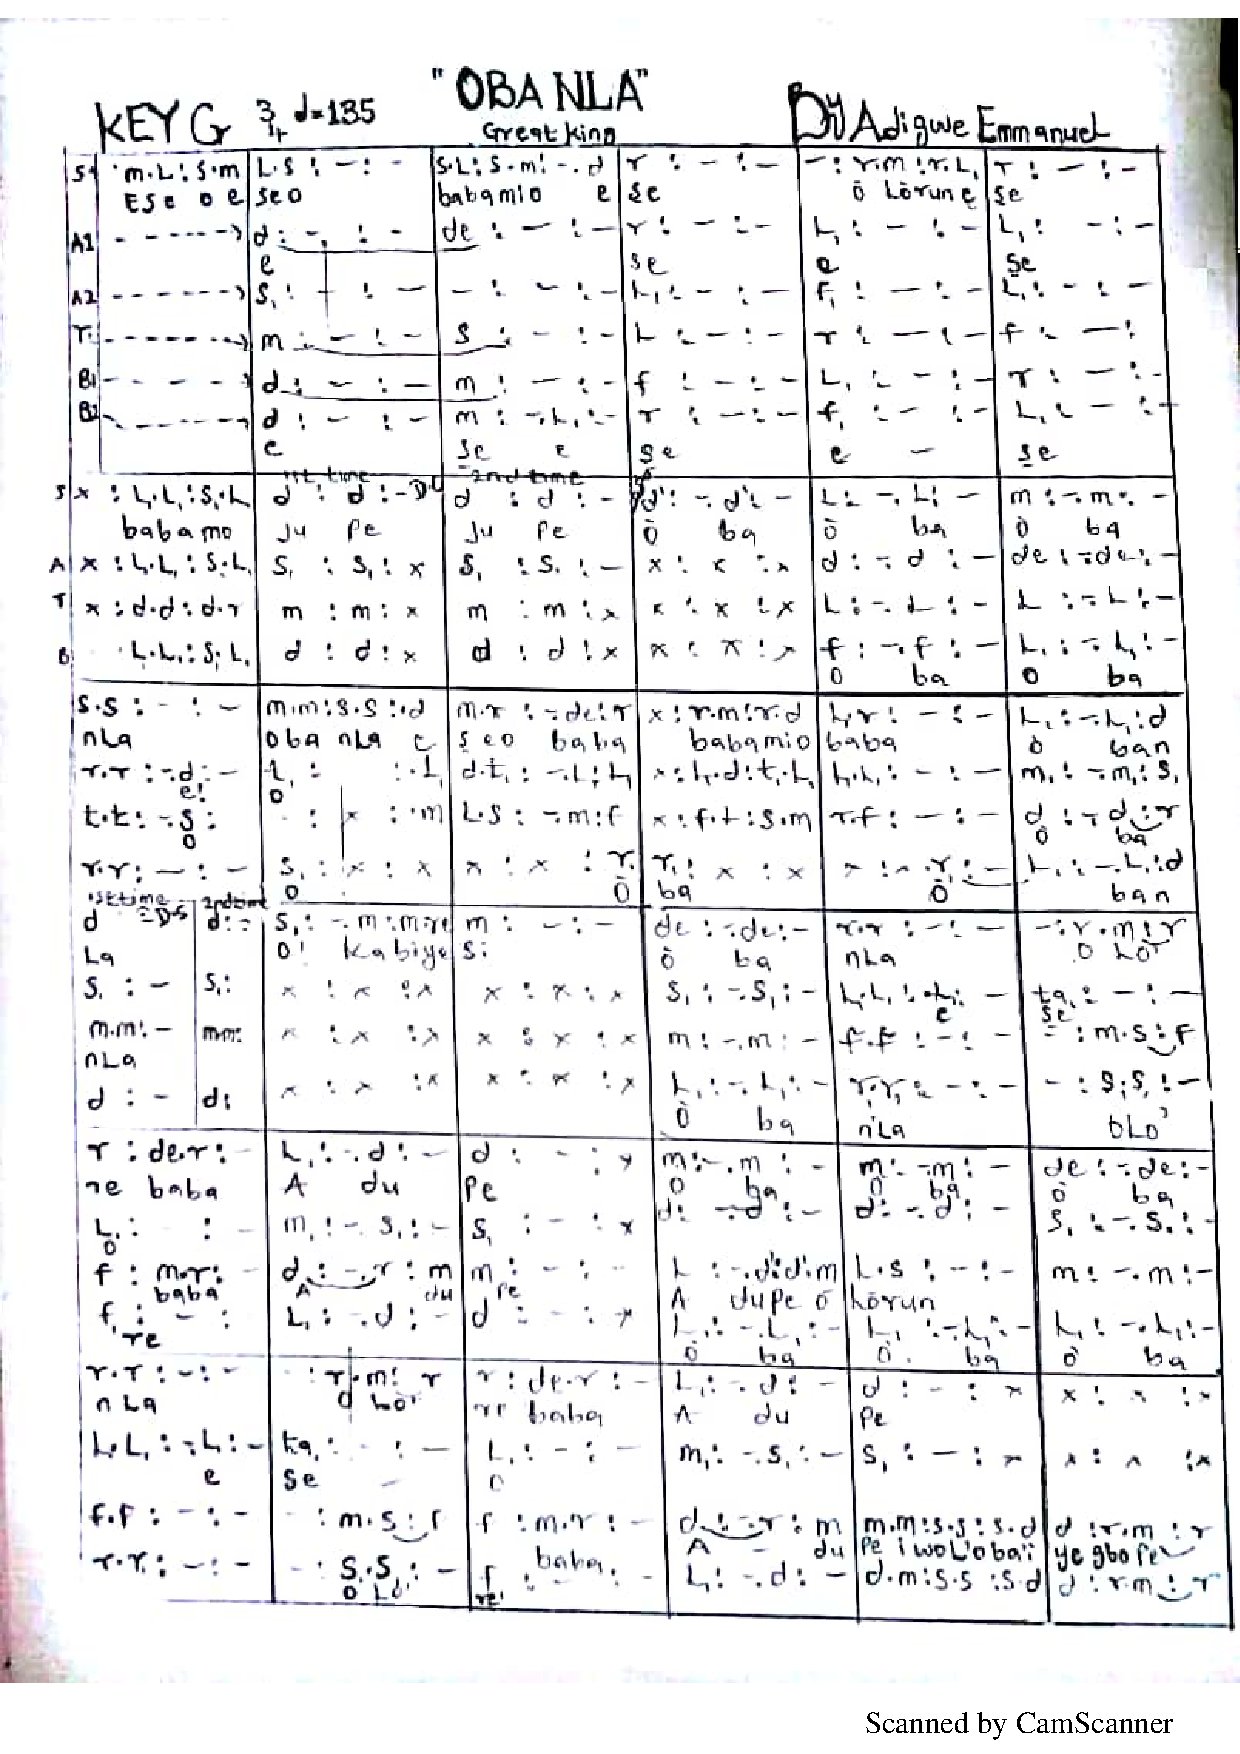 "OBA NLA"
KEY G 3/4 d=135 Great King By Adigwe Emmanuel
S m.L : S.m L.S : – : – S.L : S.m : –.d r : – : – – : r.m : r.L, r : – : –
ESe o e seo babamio e se ò Lòrun e se
A1 d : –, : – de : – : – r : – : – L, : – : – L, : – : –
e se e se
A2 S, : – : – – : – : – L, : – : – f, : – : – L, : – : –
T. m : – : – S : – : – L : – : – r : – : – f : – :
B1 d : – : – m : – : – f : – : – L, : – : – r : – : –
B2 d : – : – m : –.L, : – r : – : – f, : – : – L, : – : –
e se e se e – se
1st time 2nd time
S x : L,.L, : S,.L d : d : – D.C d : d : – d' : –.d' : – L : –.L : – m : –.m : –
babamo ju pe ju pe ò ba ò ba ò ba
A x : L,.L, : S,.L, S, : S, : x S, : S, : – x : x : x d : –.d : – de : –.de : –
T x : d.d : d.r m : m : x m : m : x x : x : x L : –.L : – L : –.L : –
B L,.L, : S,.L, d : d : x d : d : x x : x : x f : –.f : – L, : –.L, : –
O ba O ba
S.S : – : – m.m : S.S : .d m.r : –.de : r x : r.m : r.d L,.r : – : – L, : –.L, : d
nLa oba nLa e seo baba babamio baba ò ban
r.r : –.d : – L, : : .L, d.t, : –.L, : L, x : L,.d : t,.L, L,.L, : – : – m, : –.m, : S,
e! o'
t.t : –.S : : x : .m L.S : –.m : f x : f.t : S.m r.f : – : – d : –.d : r
o o ba
r.r : – : – S, : x : x x : x : r. r. : x : x x : x.r : – L, : –.L, : d
o ò ba ò ban
1st time D.S 2nd time
d d : – S, : –.m : m.re m : – : – de : –.de : – r.r : – : – – : r.m : r
La o' kabiyesi ò ba nLa o Lòr
S, : – S, : x : x : x x : x : x S, : –.S, : – L,.L, : .L, : – ta, : – : –
e se
m.m : – m.m : x : x : x x : x : x m : –.m : – f.f : – : – – : m.S : f
nLa
d : – d : x : x : x x : x : x L, : –.L, : – r,.r, : – : – – : S,.S, : –
ò ba n'La oLo'
r : de.r : – L, : –.d : – d : – : x m : –.m : – m : –.m : – de : –.de : –
re baba A du pe o ba o ba ò ba
L, : : – m, : –.S, : – S, : – : x d : –.d : – d : –.d : – S, : –.S, : –
o
f : m.r : – d : –.r : m m : – : – L : –.d' : d'.m L.S : – : – m : –.m : –
baba A du pe A dupe ó Lòrun
f, : – : – L, : –.d : – d : – : x L, : –.L, : – L, : –.L, : – L, : –.L, : –
're ò ba ò ba ò ba
r.r : – : – : r.m : r r : de.r : – L, : –.d : – d : – : x x : x : x
nLa o Lòr re baba A du pe
L,.L, : –.L, : – ta, : – : – L, : – : – m, : –.S, : – S, : – : x x : x : x
e se – o
f.f : – : – – : m.S : f f : m.r : – d : –.r : m m.m : S.S : S.d d : r.m : r
baba A – du pe i woL'oba'i ye gbo pe
r.r. : – : – – : S,.S, : – f : – : – L, : –.d : – d.m : S.S : S.d d : r.m : r
o Lo' re'
Scanned by CamScanner